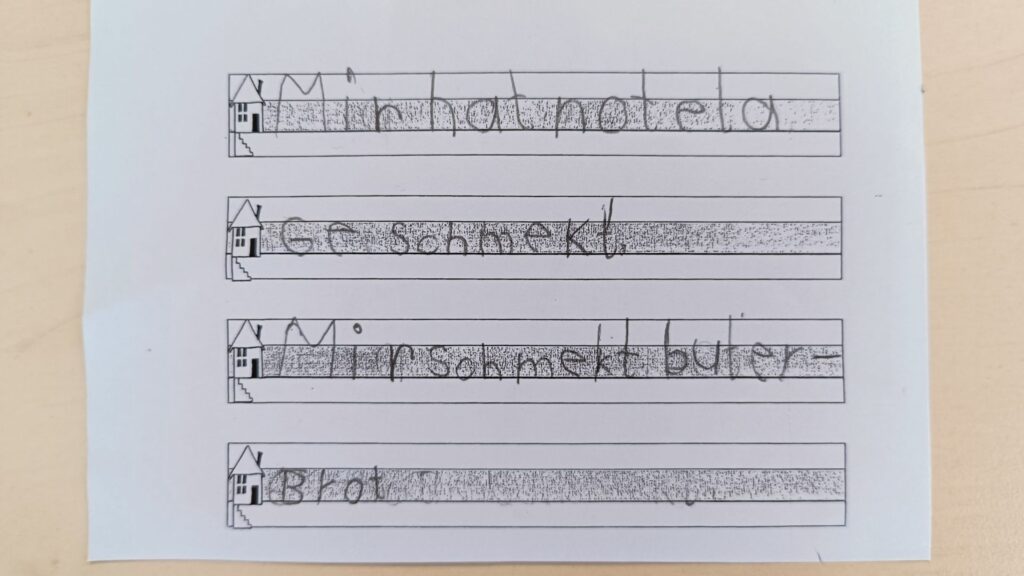 Mir hat notela
Ge schmekt.
Mir schmekt buter-
Brot